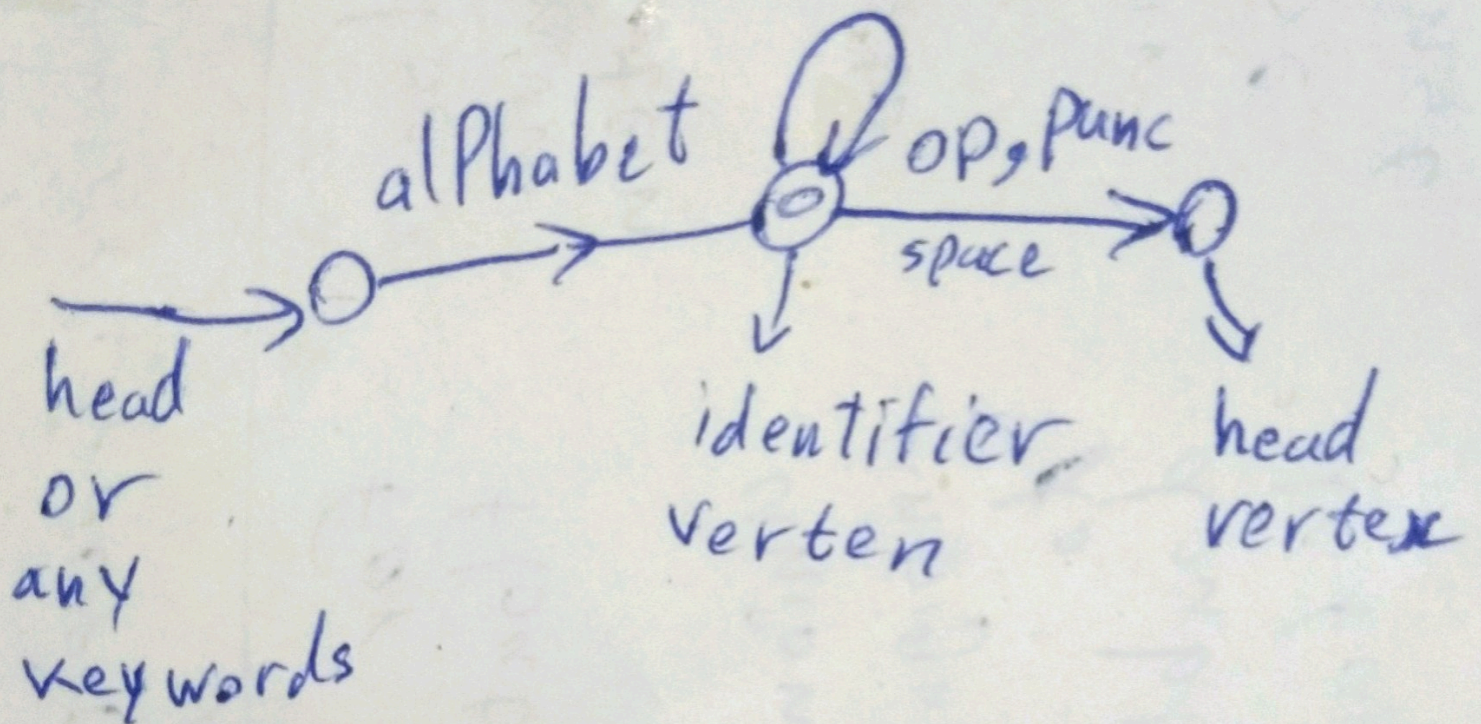 alphabet
op, punc
space
head
or
any
keywords
identifier
verten
head
vertex